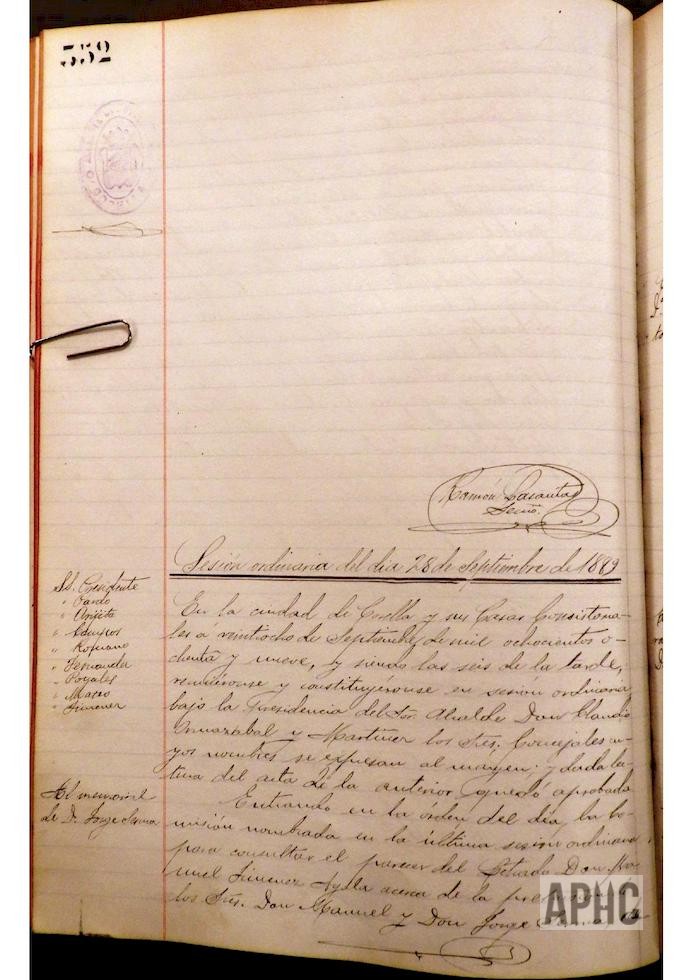 352
Ramón Lasanta
Secrio.
Sesión ordinaria del dia 28 de Septiembre de 1889
SS. Presidente
" Pardo
" Campos
" Romano
" Fernandez
" Poyales
" Marco
" Jimenez
En la ciudad de Corella y sus Casas Consistoria-
les á veintiocho de Septiembre de mil ochocientos o-
chenta y nueve, y siendo las seis de la tarde,
reunieronse y constituyéronse en sesión ordinaria
bajo la Presidencia del Sor. Alcalde Don Claudio
y Martinez los Sres. Concejales cu-
yos nombres se expresan al margen; y dada lec-
tura del acta de la anterior quedó aprobada
El memorial
de D. Jorge
Entrando en la órden del dia, la Co-
misión nombrada en la última sesión ordinaria
para consultar el parecer del Letrado Don Ma-
nuel Jimenez Ayala acerca de la
los Sres. Don Manuel y Don Jorge
APHC